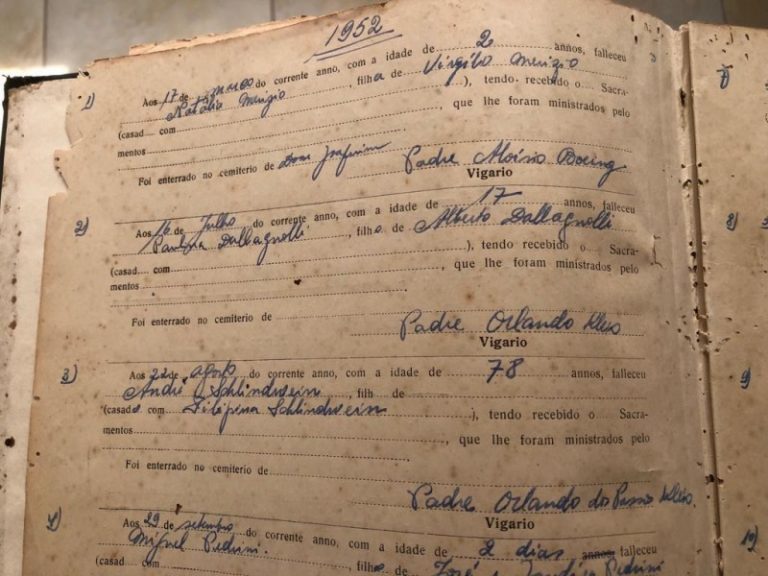 1952
1) Aos 17 de março do corrente anno, com a idade de 2 annos, falleceu
Natália Merizio, filha de Virgílio Merizio
(casad com ), tendo recebido o Sacra-
mentos , que lhe foram ministrados pelo
Foi enterrado no cemiterio de Dom Joaquim
Padre Aloísio Boeing
Vigario
2) Aos 16 de Julho do corrente anno, com a idade de 17 annos, falleceu
Paulina Dallagnolli, filha de Alberto Dallagnolli
(casad com ), tendo recebido o Sacra-
mentos , que lhe foram ministrados pelo
Foi enterrado no cemiterio de
Padre Orlando
Vigario
3) Aos 22 de agosto do corrente anno, com a idade de 78 annos, falleceu
André Schlindwein, filh de
(casado com Filipina Schlindwein ), tendo recebido o Sacra-
mentos , que lhe foram ministrados pelo
Foi enterrado no cemiterio de
Padre Orlando do
Vigario
4) Aos 29 de setembro do corrente anno, com a idade de 2 dias annos falleceu
Miguel Pedrini. , filho de José e Pedrini
(casad com
7)
8)
9)
10)